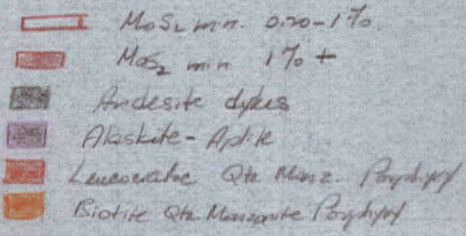 MoS2 min. 0.20-1%
MoS2 min 1% +
Andesite dykes
Alaskite-Aplite
Leucocratic Qtz Monz. Porphyry
Biotite Qtz Monzonite Porphyry